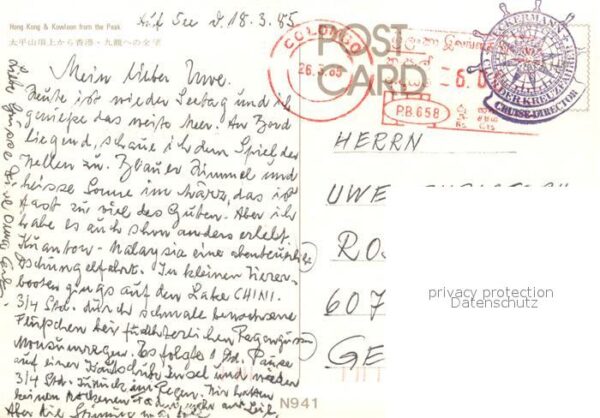 Hong Kong & Kowloon from the Peak
太平山頂上から香港・九龍への全望
Auf See d 18.3.85
POST
CARD
COLOMBO
26.3.85
P.B.658
CRUISE-DIRECTOR
Mein lieber Uwe.
Heute ist wieder Seetag und ich
genieße das weite Meer. An Bord
liegend, schaue ich dem Spiel der
Wellen zu. Blauer Himmel und
heisse Sonne im März, das ist
fast zu viel des Guten. Aber ich
habe es auch schon anders erlebt.
Kuantan - Malaysia eine abenteuerliche
Dschungelfahrt. In kleinen Vierer-
booten gings auf den Lake CHINI.
3/4 Std. durch schmale
Flüßchen bei fürchterlichen Regengüssen
Monsunregen. Es folgte 1 Std. Pause
auf einer Insel und wieder
3/4 Std. zurück im Regen. Wir hatten
keinen trockenen Faden mehr am Leib.
Aber die Stimmung
Liebe Grüsse Deine Oma
HERRN
UWE
RO
607
GE
privacy protection
Datenschutz
N941